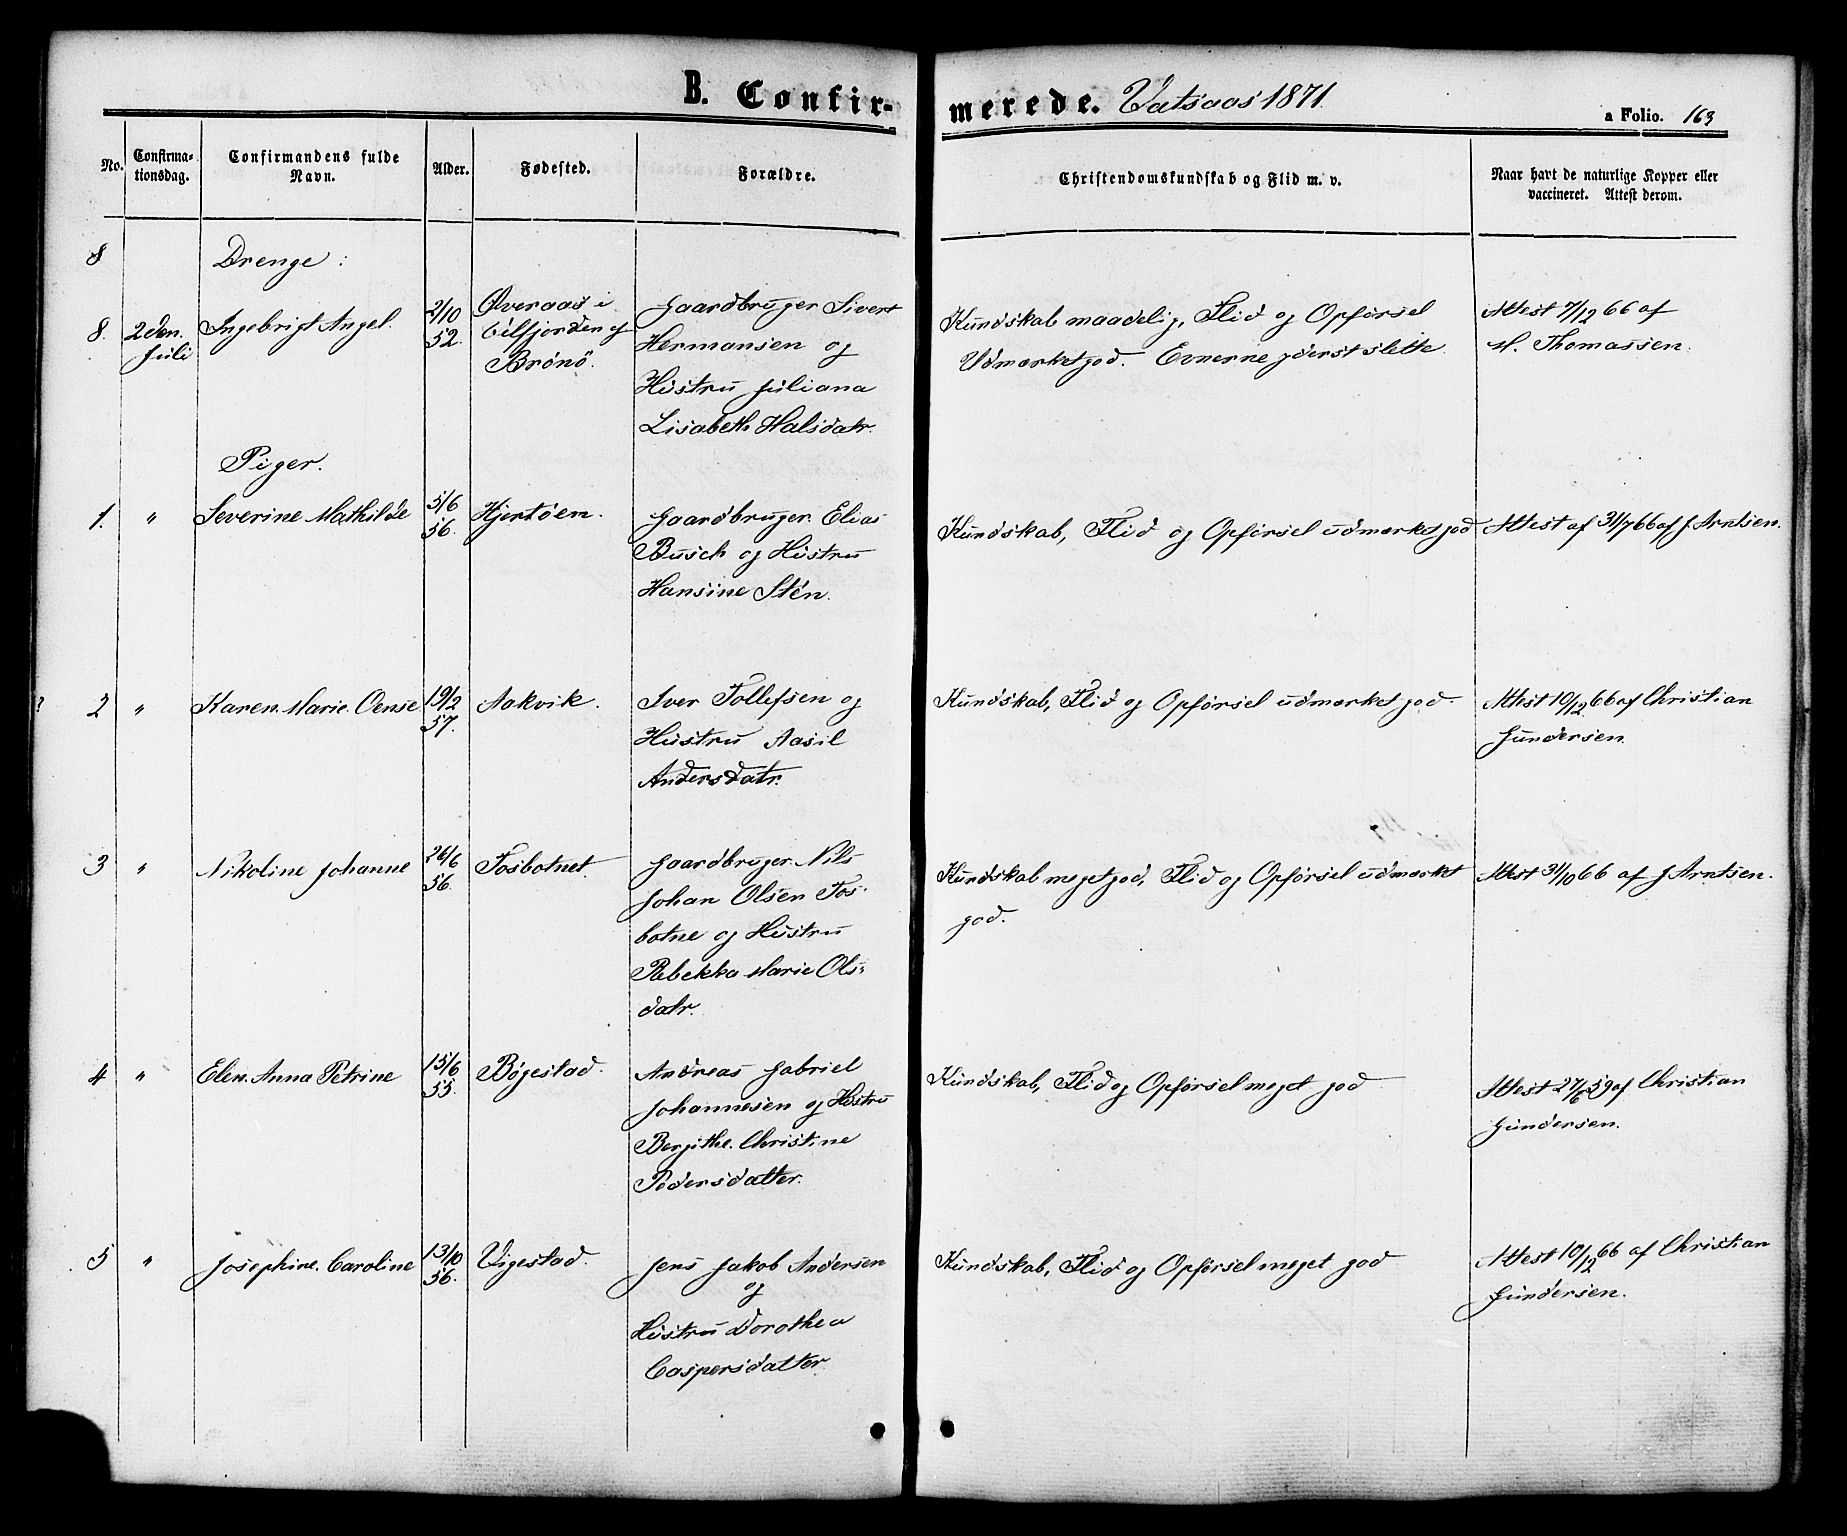 B. Confir-
merede. Vatsaas 1871.
a Folio. 163
No.
Confirma-
tionsdag.
Confirmandens fulde
Navn.
Alder.
Fødested.
Forældre.
Christendomskundskab og Flid m. v.
Naar havt de naturlige Kopper eller
vaccineret. Attest derom.
8
Drenge:
8.
2den
Juli
Ingebrigt Angel.
2/10
52.
Øveraas i
Velfjorden af
Brönö.
Gaardbruger Sivert
Hermansen og
Hustru Juliana
Lisabeth Halsdatr.
Kundskab maadelig, Flid og Opförsel
Udmærket god. Evnerne yderst slette
Attest 7/12 66 af
M. Thomassen.
Piger.
1.
"
Severine Mathilde
5/6
56.
Hjertöen.
Gaardbruger Elias
Busch og Hustru
Hansine Stén.
Kundskab, Flid og Opförsel udmærket god
Attest af 31/7 66 af J. Arntsen.
2
"
Karen Marie Oense
19/2
57.
Aakvik.
Iver Tollefsen og
Hustru Aasil
Andersdatr.
Kundskab, Flid og Opförsel udmærket god.
Attest 10/12 66 af Christian
Gundersen.
3
"
Nikoline Johanne
26/6
56.
Fosbotnet.
Gaardbruger Nils
Johan Olsen Fos-
botne og Hustru
Rebekka Marie Ols-
datr.
Kundskab meget god, Flid og Opförsel udmærket
god.
Attest 31/10 66 af J Arntsen.
4
"
Elen Anna Petrine
15/6
55.
Bögestad.
Andreas Gabriel
Johannesen og Hustru
Bergithe Christine
Pedersdatter.
Kundskab, Flid og Opförsel meget god
Attest 27/6 59 af Christian
Gundersen.
5
"
Josephine Caroline
13/10
56.
Vigestad.
Jens Jakob Andersen
og
Hustru Dorothea
Caspersdatter.
Kundskab, Flid og Opförsel meget god
Attest 10/12 66 af Christian
Gundersen.